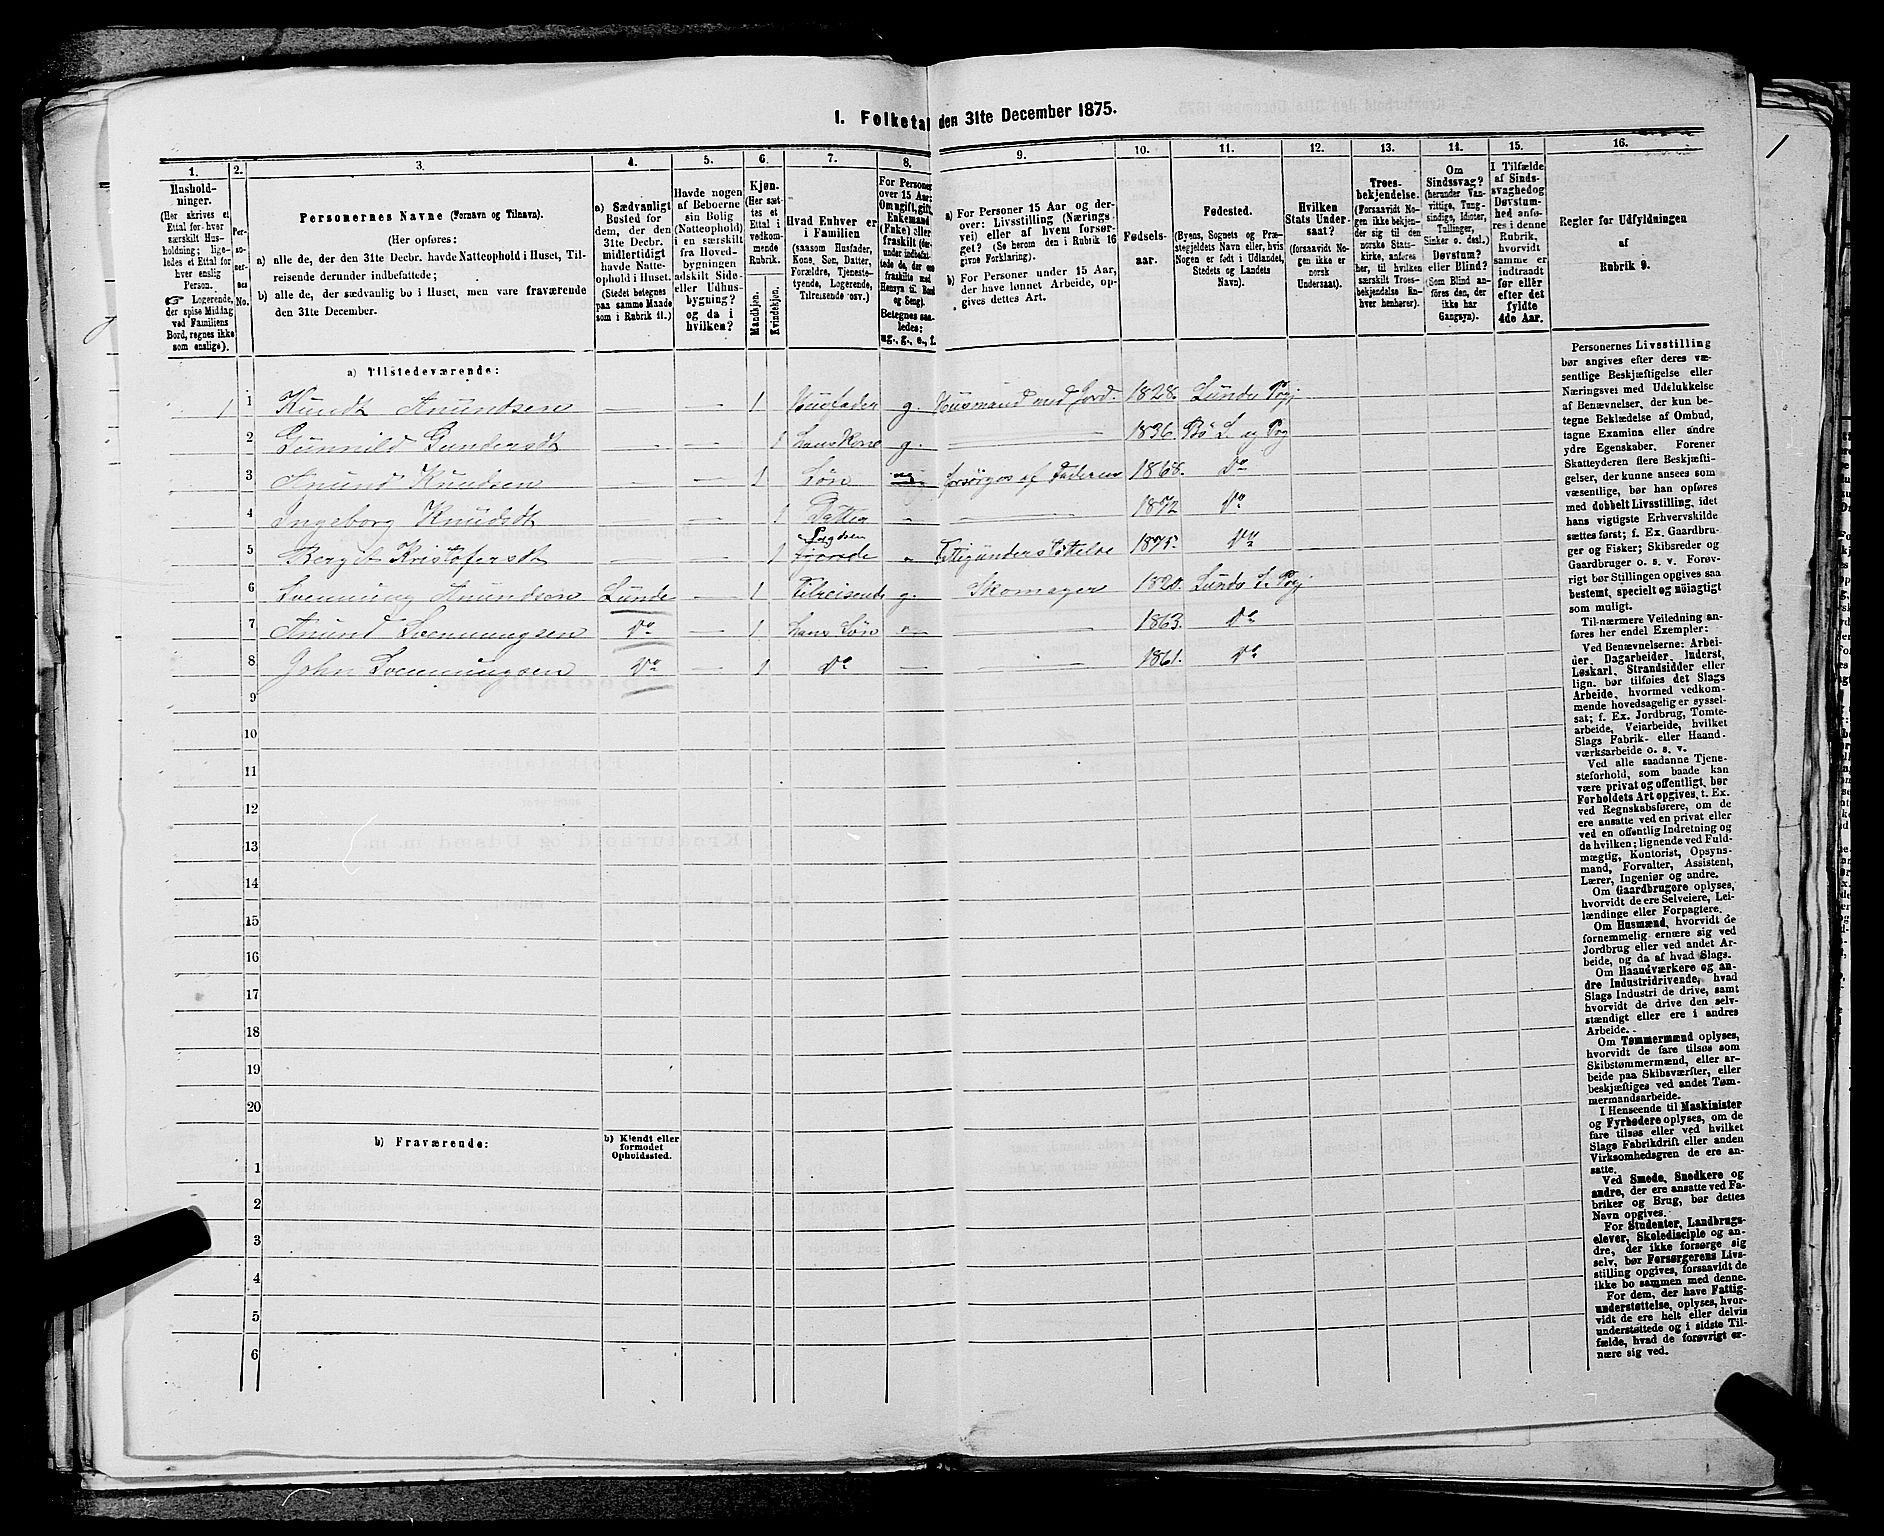 I. Folketal den 31te December 1875.
1
1.
2.
3.
4.
5.
6.
7.
8.
9.
10.
11.
12.
13.
14.
15.
16.
Hushold-
ninger.
(Her skrives et
Ettal for hver
særskilt Hus-
holdning; lige-
ledes et Ettal for
hver enslig
Person.
☞ Logerende,
der spise Middag
ved Familiens
Bord, regnes ikke
som enslige).
Per-
so-
ner-
nes
No.
Personernes Navne (Fornavn og Tilnavn).
(Her opføres:
a) alle de, der den 31te Decbr. havde Natteophold i Huset, Til-
reisende derunder indbefattede;
b) alle de, der sædvanlig bo i Huset, men vare fraværende
den 31te December.
a) Sædvanligt
Bosted for
dem, der den
31te Decbr.
midlertidigt
havde Natte-
ophold i Huset.
(Stedet betegnes
paa samme Maade
som i Rubrik 11.)
Havde nogen
af Beboerne
sin Bolig
(Natteophold)
i en særskilt
fra Hoved-
bygningen
adskilt Side-
eller Udhus-
bygning?
og da i
hvilken?
Kjøn.
(Her sæt-
tes et
Ettal i
vedkom-
mende
Rubrik.
Mandkjøn.
Kvindekjøn.
Hvad Enhver er
i Familien
(saasom Husfader,
Kone, Søn, Datter,
Forældre, Tjeneste-
tyende, Logerende,
Tilreisende osv.).
For Personer
over 15 Aar:
Om ugift, gift,
Enkemand
(Enke) eller
fraskilt (der-
under indbefat-
tede de, der ere
fraskilte med
Hensyn til Bord
og Seng).
Betegnes saa-
ledes:
ug., g., e., f.
a) For Personer 15 Aar og der-
over: Livsstilling (Nærings-
vei) eller af hvem forsør-
get? (Se herom den i Rubrik 16
givne Forklaring).
b) For Personer under 15 Aar,
der have lønnet Arbeide, op-
gives dettes Art.
Fødsels-
aar.
Fødested.
(Byens, Sognets og Præ-
stegjeldets Navn eller, hvis
Nogen er født i Udlandet,
Stedets og Landets
Navn).
Hvilken
Stats Under-
saat?
(forsaavidt No-
gen ikke er
norsk
Undersaat).
Troes-
bekjendelse.
(Forsaavidt No-
gen ikke bekjen-
der sig til den
norske Stats-
kirke, anføres
her, til hvilken
særskilt Troes-
bekjendelse En-
hver henhører).
Om
Sindssvag?
(herunder Van-
vittige, Tung-
sindige, Idioter,
Tullinger,
Sinker o. desl.).
Døvstum?
eller Blind?
(Som Blind an-
føres den, der
ikke har
Gangsyn).
I Tilfælde
af Sinds-
svaghed og
Døvstum-
hed anfø-
res i denne
Rubrik,
hvorvidt
samme er
indtraadt
før eller
efter det
fyldte
4de Aar.
Regler for Udfyldningen
af
Rubrik 9.
a) Tilstedeværende:
1 1 Knudt Anundsen — — 1 Husfader g. Husmand med Jord. 1828. Lunde Pgj
2 Gunnild Gundersdt — — 1 hans Kone g. — 1836. Bø S. og Pgj
3 Anund Knudsen — — 1 Søn forsørges af Faderen 1868. Do
4 Ingeborg Knudsdt — — 1 Datter " — 1872 Do
5 Bergit Kristofersdt — — 1 " Fattigunderstøttelse 1875. Do
6 Svennung Anundsen Lunde — 1 Tilreisende g. Skomager 1820. Lunde S. Pgj
7 Anund Svennungsen Do — 1 hans Søn — — 1863. Do
8 John Svennungsen Do — 1 Do — — 1861. Do
9
10
11
12
13
14
15
16
17
18
19
20
b) Fraværende:
b) Kjendt eller
formodet
Opholdssted.
1
2
3
4
5
6
Personernes Livsstilling
bør angives efter deres væ-
sentlige Beskjæftigelse eller
Næringsvei med Udelukkelse
af Benævnelser, der kun be-
tegne Beklædelse af Ombud,
tagne Examina eller andre
ydre Egenskaber. Forener
Skatteyderen flere Beskjæfti-
gelser, der kunne ansees som
væsentlige, bør han opføres
med dobbelt Livsstilling, idet
hans vigtigste Erhvervskilde
sættes først; f. Ex. Gaardbru-
ger og Fisker; Skibsreder og
Gaardbruger o. s. v. Forøv-
rigt bør Stillingen opgives saa
bestemt, specielt og nøiagtigt
som muligt.
Til nærmere Veiledning an-
føres her endel Exempler:
Ved Benævnelserne: Arbei-
der, Dagarbeider, Inderst,
Løskarl, Strandsidder eller
lign. bør tilføies det Slags
Arbeide, hvormed vedkom-
mende hovedsagelig er syssel-
sat; f. Ex. Jordbrug, Tomte-
arbeide, Veiarbeide, hvilket
Slags Fabrik- eller Haand-
værksarbeide o. s. v.
Ved alle saadanne Tjene-
steforhold, som baade kan
være privat og offentligt, bør
Forholdets Art opgives, t. Ex.
ved Regnskabsførere, om de
ere ansatte ved en privat eller
ved en offentlig Indretning og
da hvilken; lignende ved Fuld-
mægtig, Kontorist, Opsyns-
mand, Forvalter, Assistent,
Lærer, Ingeniør og andre.
Om Gaardbrugere oplyses,
hvorvidt de ere Selveiere, Lei-
lændinge eller Forpagtere.
Om Husmænd, hvorvidt de
fornemmelig ernære sig ved
Jordbrug eller ved andet Ar-
beide, og da af hvad Slags.
Om Haandværkere og an-
dre Industridrivende, hvad
Slags Industri de drive, samt
hvorvidt de drive den selv-
stændigt eller ere i andres
Arbeide.
Om Tømmermænd oplyses,
hvorvidt de fare tilsøs som
Skibstømmermænd, eller ar-
beide paa Skibsværfter, eller
beskjæftiges ved andet Tøm-
mermandsarbeide.
I Henseende til Maskinister
og Fyrbødere oplyses, om de
fare tilsøs eller ved hvilket
Slags Fabrikdrift eller anden
Virksomhedsgren de ere an-
satte.
Ved Smede, Snedkere og
andre, der ere ansatte ved Fa-
briker og Brug, bør dettes
Navn opgives.
For Studenter, Landbrugs-
elever, Skoledisciple og an-
dre, der ikke forsørge sig
selv, bør Forsørgerens Livs-
stilling opgives, forsaavidt de
ikke bo sammen med denne.
For dem, der have Fattig-
understøttelse, oplyses, hvor-
vidt de ere helt eller delvis
understøttede og i sidste Til-
fælde, hvad de forøvrigt er-
nære sig ved.